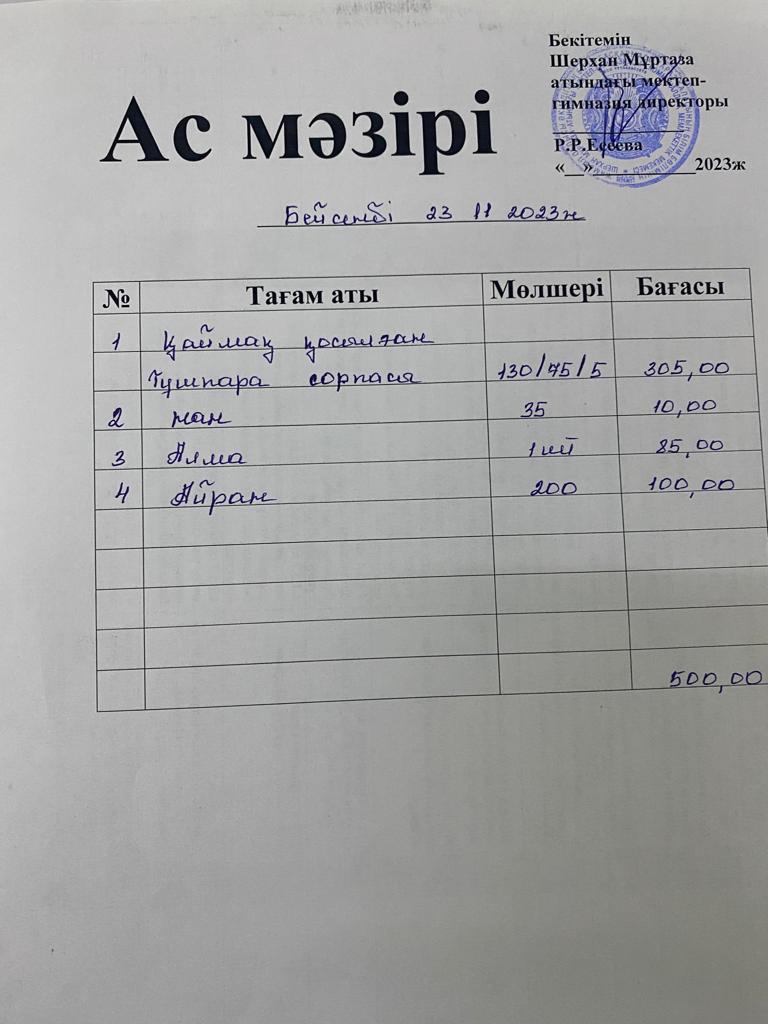 Бекітемін
Шерхан Мұртаза
атындағы мектеп-
гимназия директоры
Р.Р.Есеева
«__»___________2023ж
Ас мәзірі
Бейсенбі 23 11 2023ж
№ Тағам аты Мөлшері Бағасы
1 Қаймақ қосылған
Тұшпара сорпасы 130/75/5 305,00
2 нан 35 10,00
3 Алма 1шт 85,00
4 Айран 200 100,00
500,00